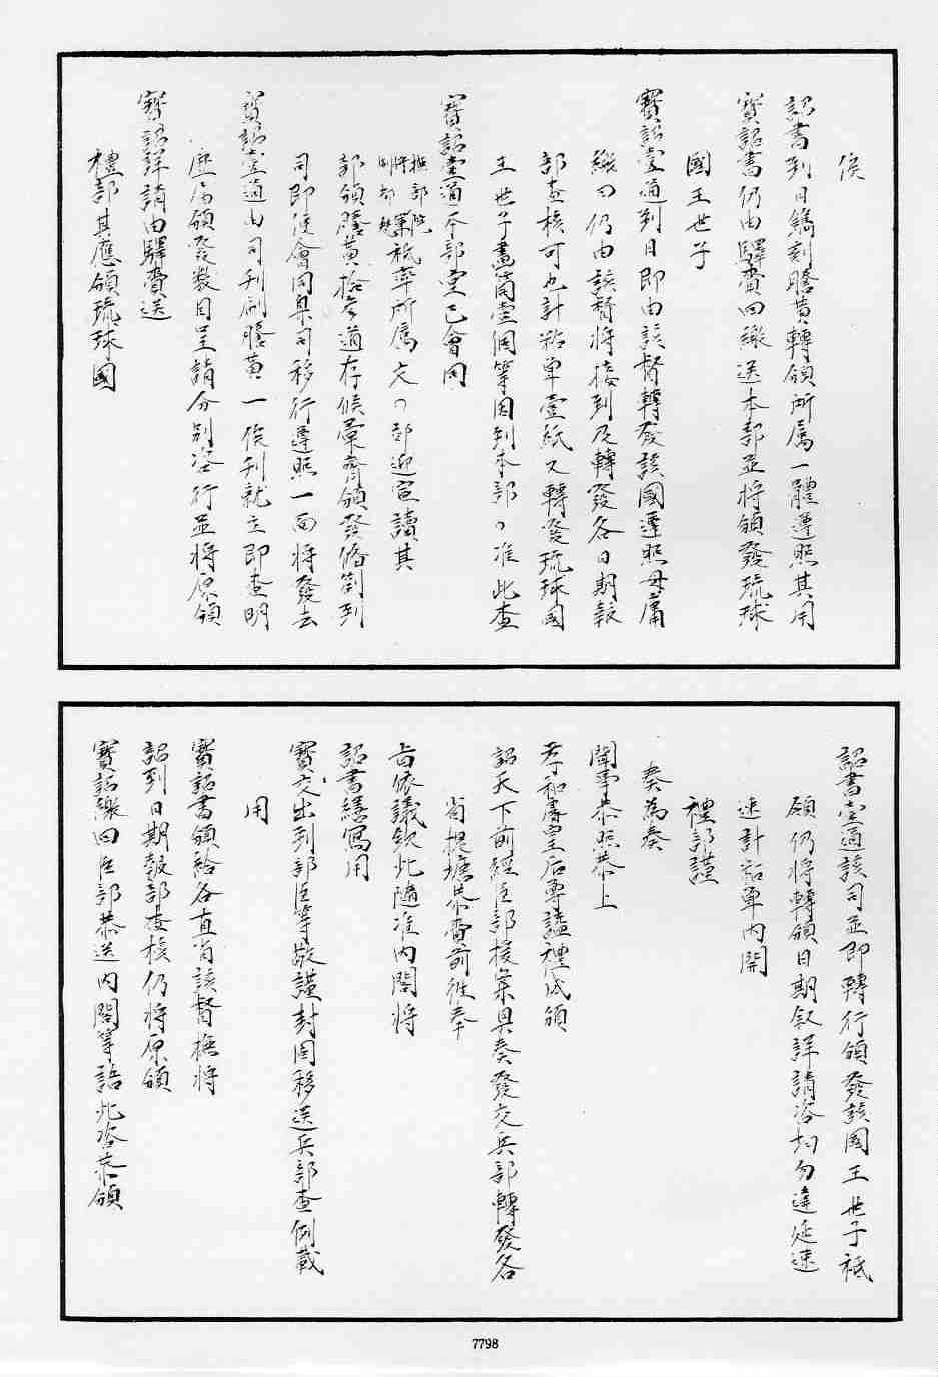 俟
詔書到日鐫刻謄黃轉頒所属一體遵照其用
寳詔書仍由驛賫回繳送本部並将頒發琉球
國王世子
寳詔壹通到日即由該督轉發該國遵照毋庸
繳回仍由該督将接到及轉發各日期報
部查核可也計粘单壹紙又轉發琉球國
王世子畫筒壹個等因到本部々准此查
寳詔壹通本部堂已會同
撫部院
将軍
副都統
祗率所属文々部迎宣讀其
部頒謄黃拾道存候彙齊頒發俻劄到
司即使會同臬司移行遵照一面将發去
寳詔壹通由司刊刷謄黃一俟刊就立即查明
應局頒發数目呈請分别咨行並将原頒
寳詔詳請由驛賫送
禮部其應頒琉球國
詔書壹通該司並即轉行頒發該國王世子祗
頒仍将轉頒日期叙詳請咨均勿違延速
速計詔单内開
禮部謹
奏為奏
聞事恭照恭上
孝和睿皇后尊諡禮成頒
詔天下前經臣部援案具奏發交兵部轉發各
省提塘恭賫前徃奉
㫖依議欽此隨准内閣将
詔書繕寫用
寳交出到部臣等敬謹封固移送兵部查例載
用
寳詔書頒給各直省該督撫将
詔到日期報部查核仍将原頒
寳詔繳回臣部恭送内閣等語此咨恭頒
7798